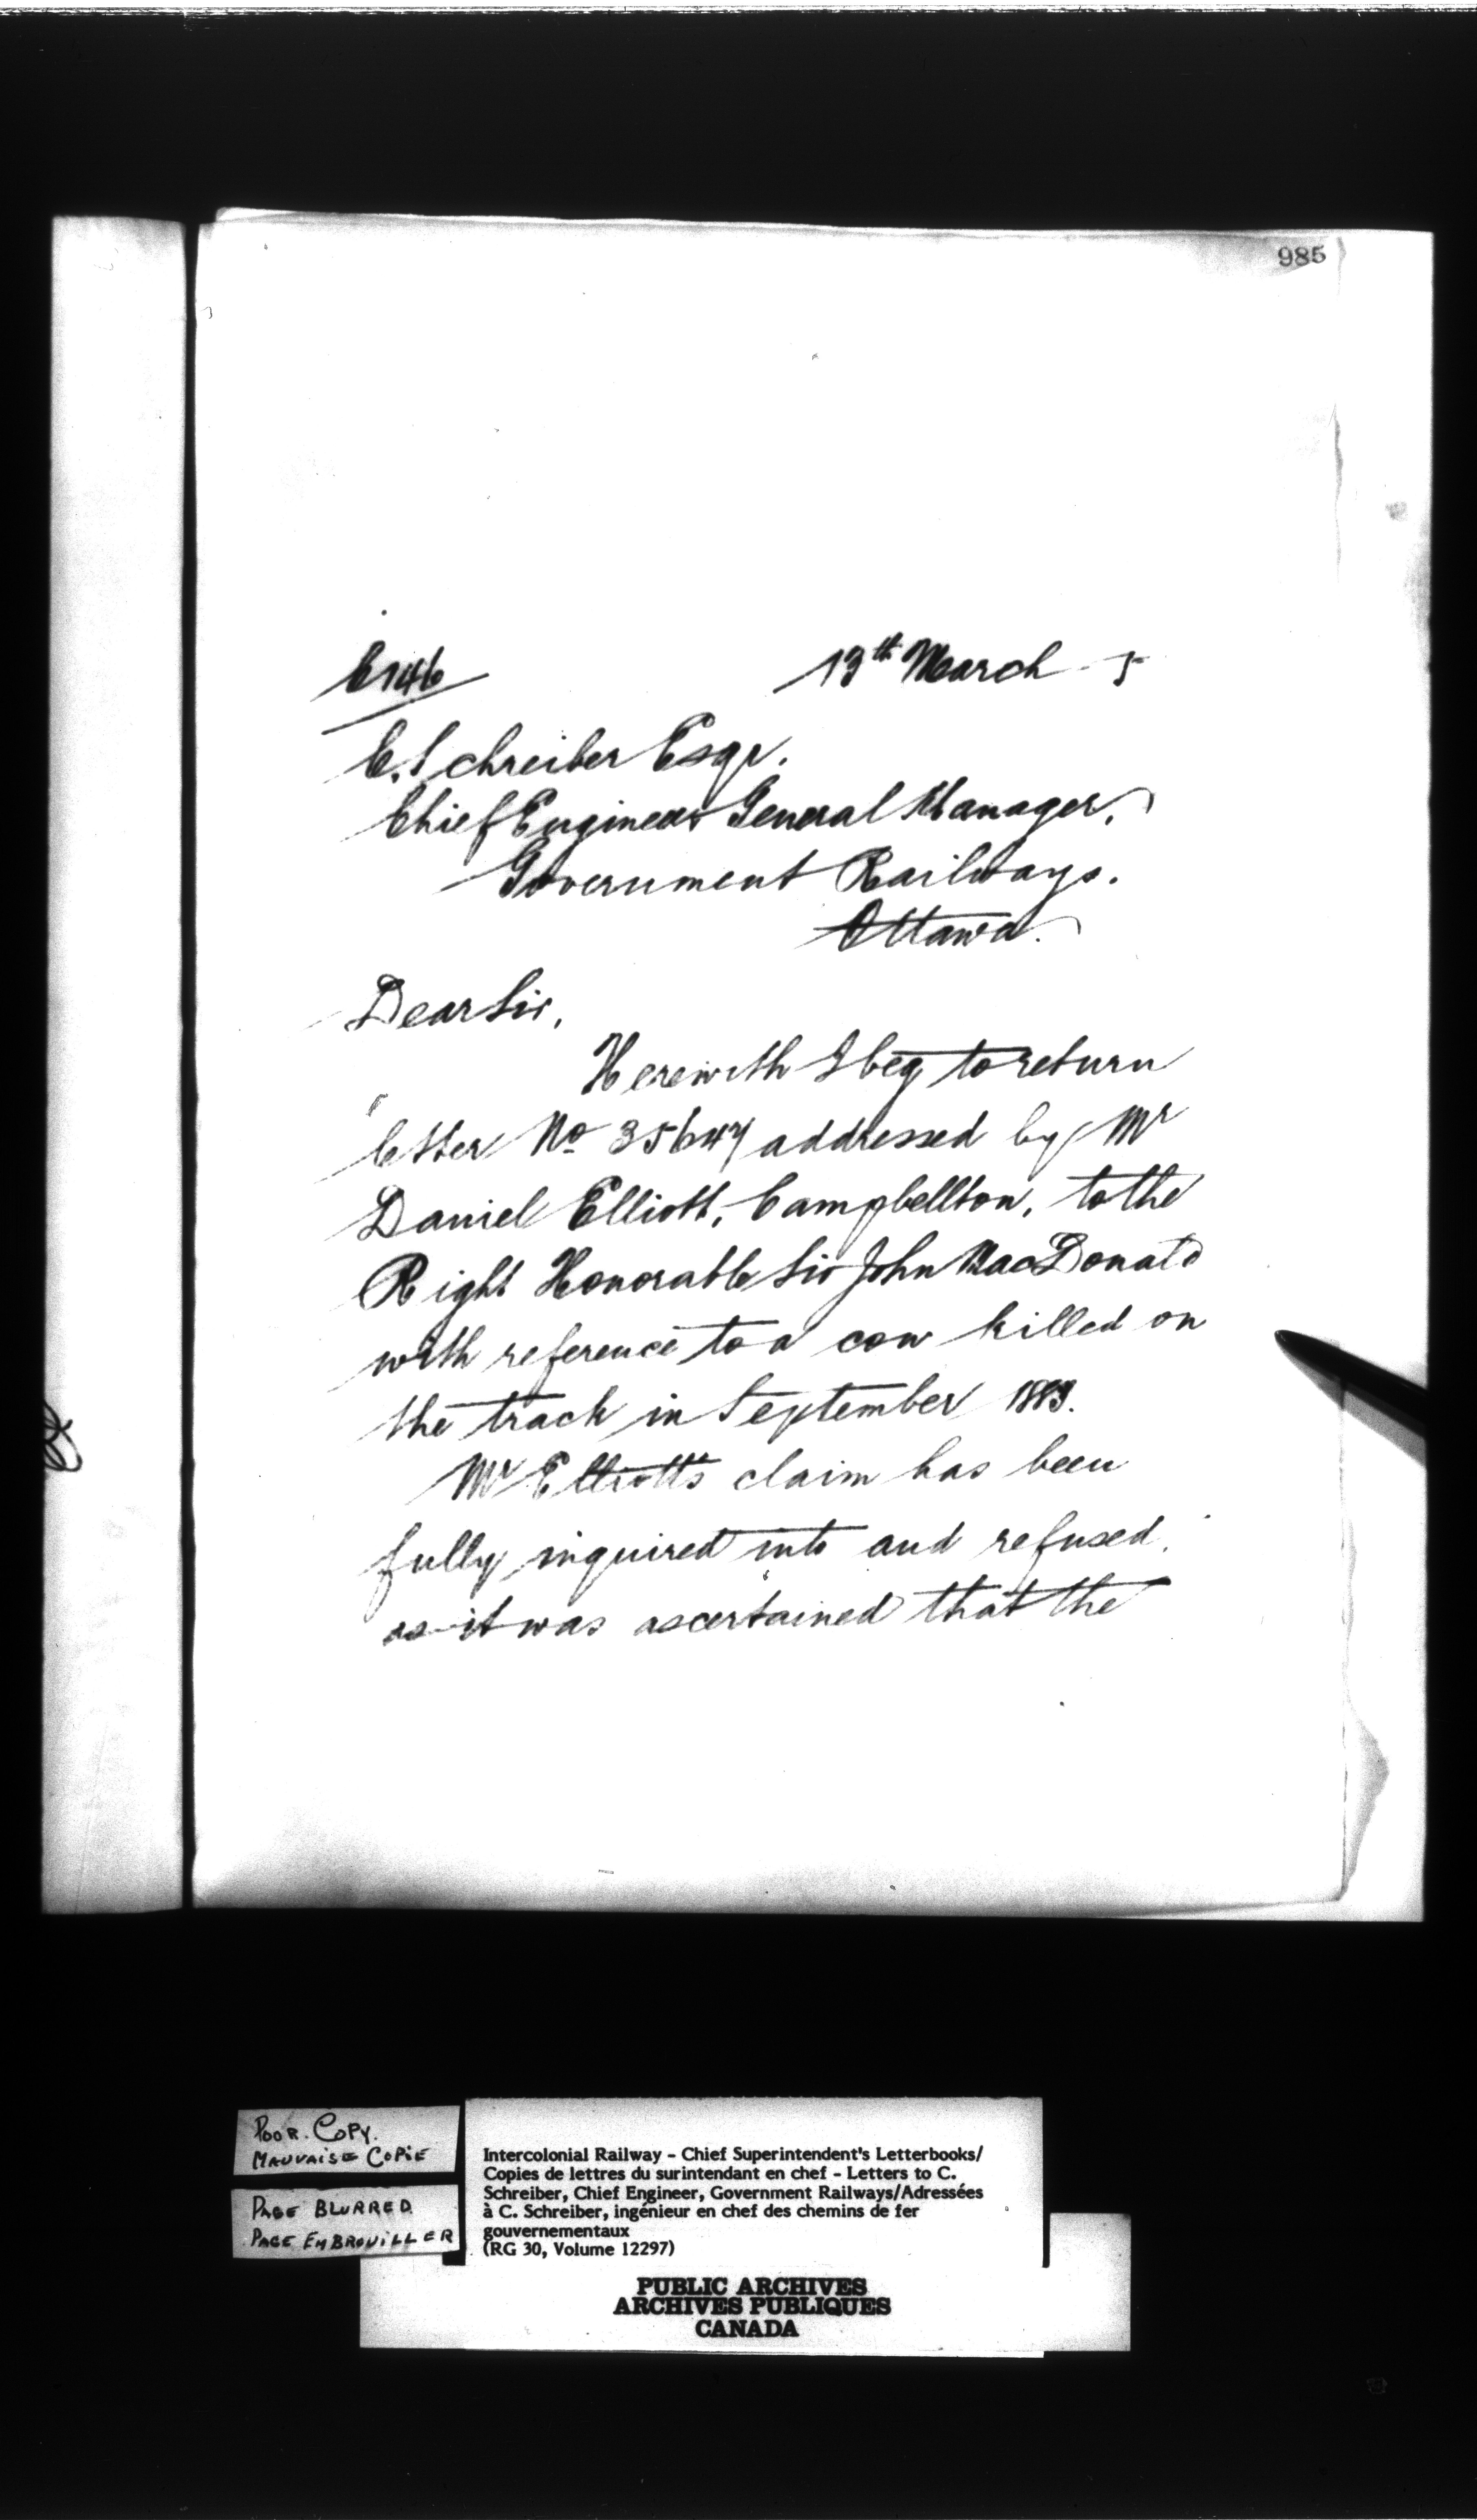 985
C146
13th March 5
C. Schreiber Esqr.
Chief Engineer General Manager,
Government Railways.
Ottawa.
Dear Sir,
Herewith I beg to return
letter No 35647 addressed by Mr
Daniel Elliott, Campbellton, to the
Right Honorable Sir John MacDonald
with reference to a cow killed on
the track in September 1883.
Mr Elliott's claim has been
fully inquired into and refused.
as it was ascertained that the
POOR. COPY.
MAUVAISE COPIE
PAGE BLURRED
PAGE EMBROUILLER
Intercolonial Railway – Chief Superintendent's Letterbooks/
Copies de lettres du surintendant en chef – Letters to C.
Schreiber, Chief Engineer, Government Railways/Adressées
à C. Schreiber, ingénieur en chef des chemins de fer
gouvernementaux
(RG 30, Volume 12297)
PUBLIC ARCHIVES
ARCHIVES PUBLIQUES
CANADA